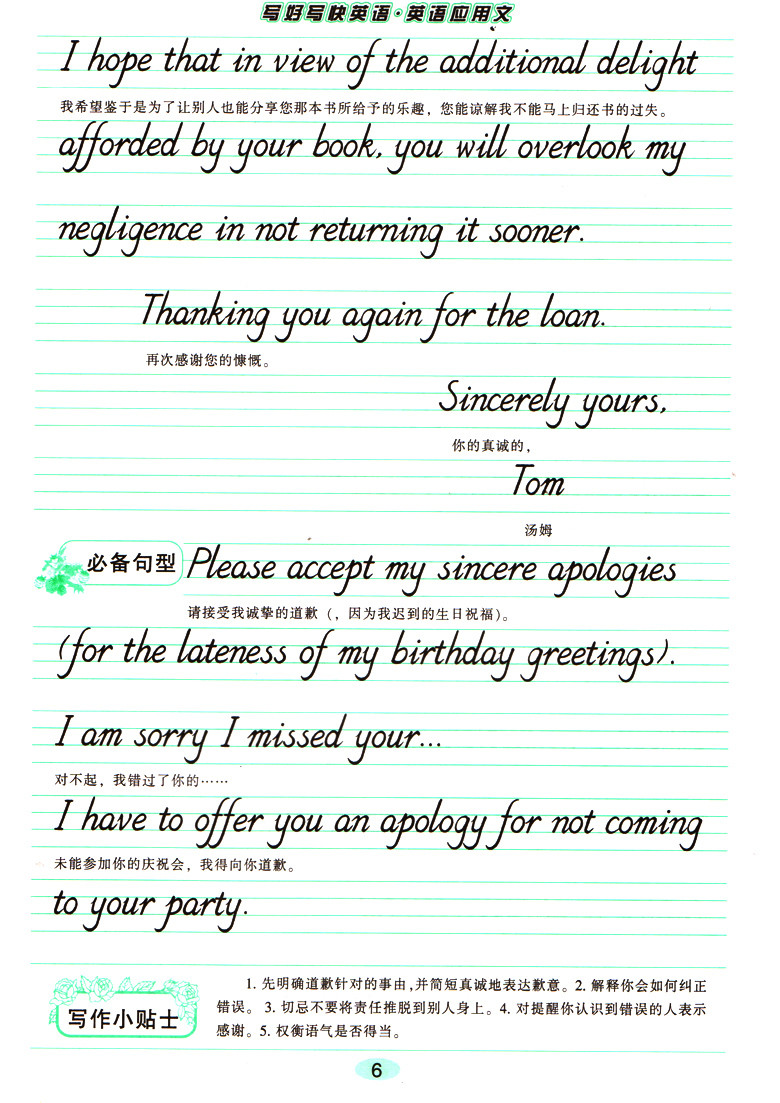 写好写快英语·英语应用文
I hope that in view of the additional delight
我希望鉴于是为了让别人也能分享您那本书所给予的乐趣，您能谅解我不能马上归还书的过失。
afforded by your book, you will overlook my
negligence in not returning it sooner.
Thanking you again for the loan.
再次感谢您的慷慨。
Sincerely yours,
你的真诚的，
Tom
汤姆
必备句型 Please accept my sincere apologies
请接受我诚挚的道歉（，因为我迟到的生日祝福）。
(for the lateness of my birthday greetings).
I am sorry I missed your...
对不起，我错过了你的……
I have to offer you an apology for not coming
未能参加你的庆祝会，我得向你道歉。
to your party.
写作小贴士
1. 先明确道歉针对的事由,并简短真诚地表达歉意。2. 解释你会如何纠正
错误。 3. 切忌不要将责任推脱到别人身上。4. 对提醒你认识到错误的人表示
感谢。5. 权衡语气是否得当。
6